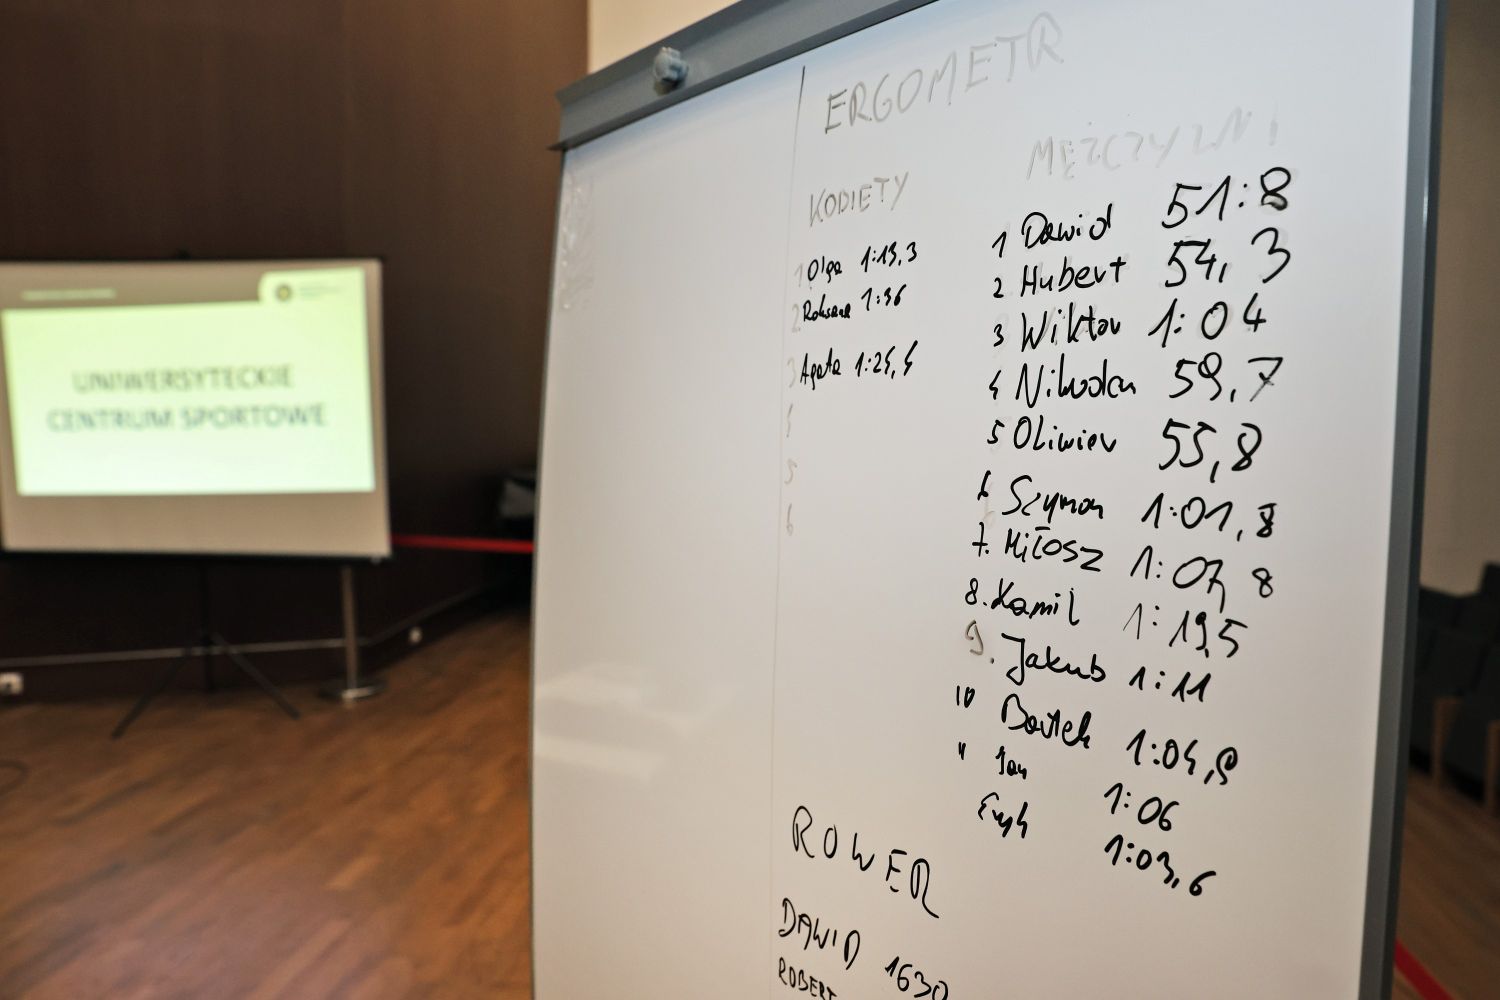 ERGOMETR
KOBIETY
1 Olga 1:19,3
2 Roksana 1:36
3 Agata 1:25,5
4
5
6
MĘŻCZYŹNI
1 Dawid 51:8
2 Hubert 54,3
3 Wiktor 1:04
4 Nikodem 59,7
5 Oliwier 55,8
6 Szymon 1:01,8
7. Miłosz 1:07,8
8. Kamil 1:19,5
9. Jakub 1:11
10 Bartek 1:04,9
11 Jan 1:06
Eryk 1:03,6
ROWER
DAWID 1630
ROBERT
UNIWERSYTECKIE
CENTRUM SPORTOWE